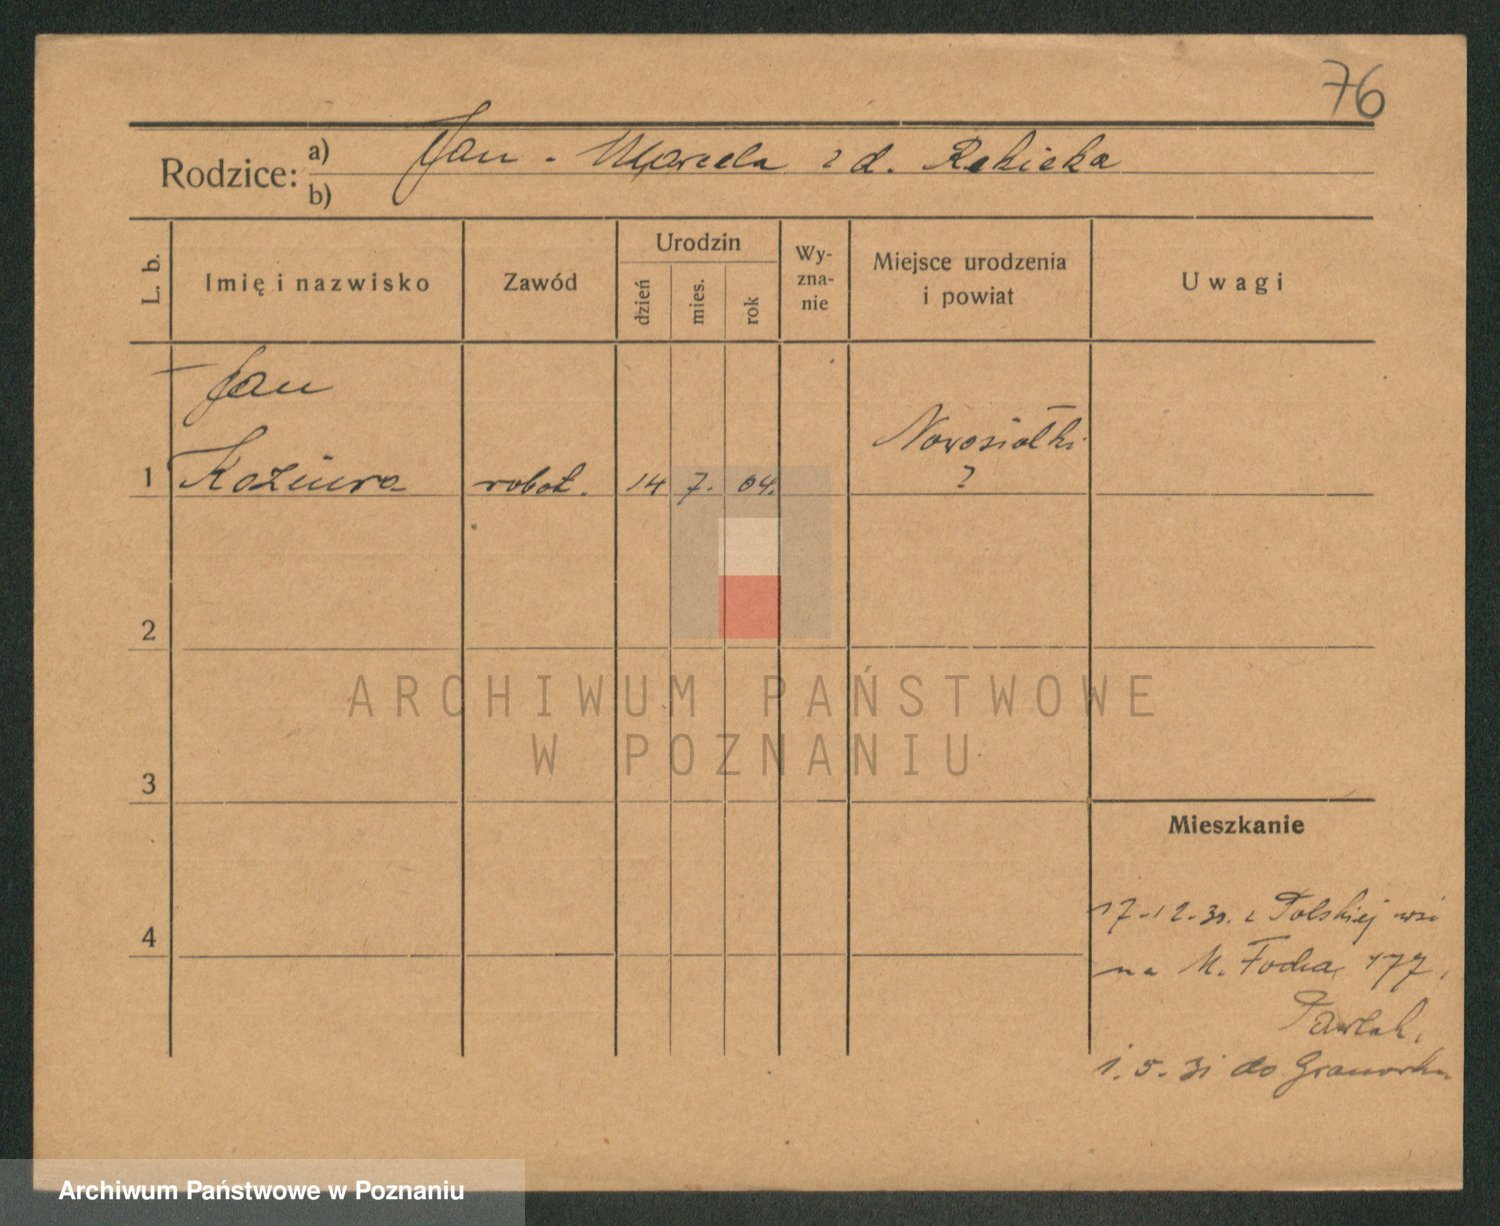 76
Rodzice: a) Jan - Marcela z d. Rekicka
b)
L. b.
Imię i nazwisko
Zawód
Urodzin
dzień
mies.
rok
Wy-
zna-
nie
Miejsce urodzenia
i powiat
Uwagi
Jan
1 Kaziura robot. 14 7. 04. Nowosiołki
?
2
3
4
Mieszkanie
17.12.30. z Polskiej wsi
na M. Focha 177.
Pawlak.
1.5.31 do Granowka
ARCHIWUM PAŃSTWOWE
W POZNANIU
Archiwum Państwowe w Poznaniu